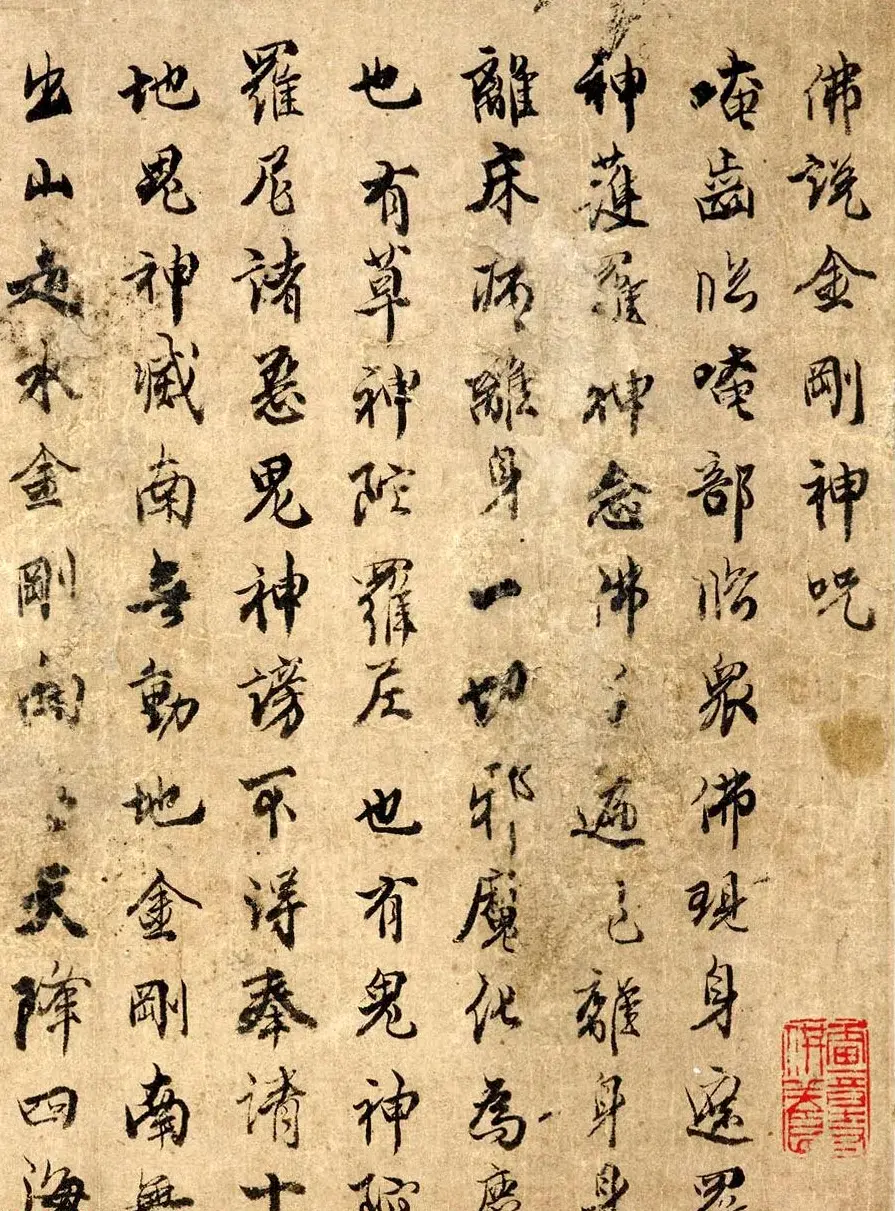 佛說金剛神咒
唵齒臨唵部臨眾佛現身遮羅
神護羅神念佛遍已離身身
離床病離身一切邪魔化為塵
也有草神陀羅尼也有鬼神陀
羅尼諸惡鬼神謗不得奉請十
地鬼神滅南無動地金剛南無
出山走水金剛天降四海